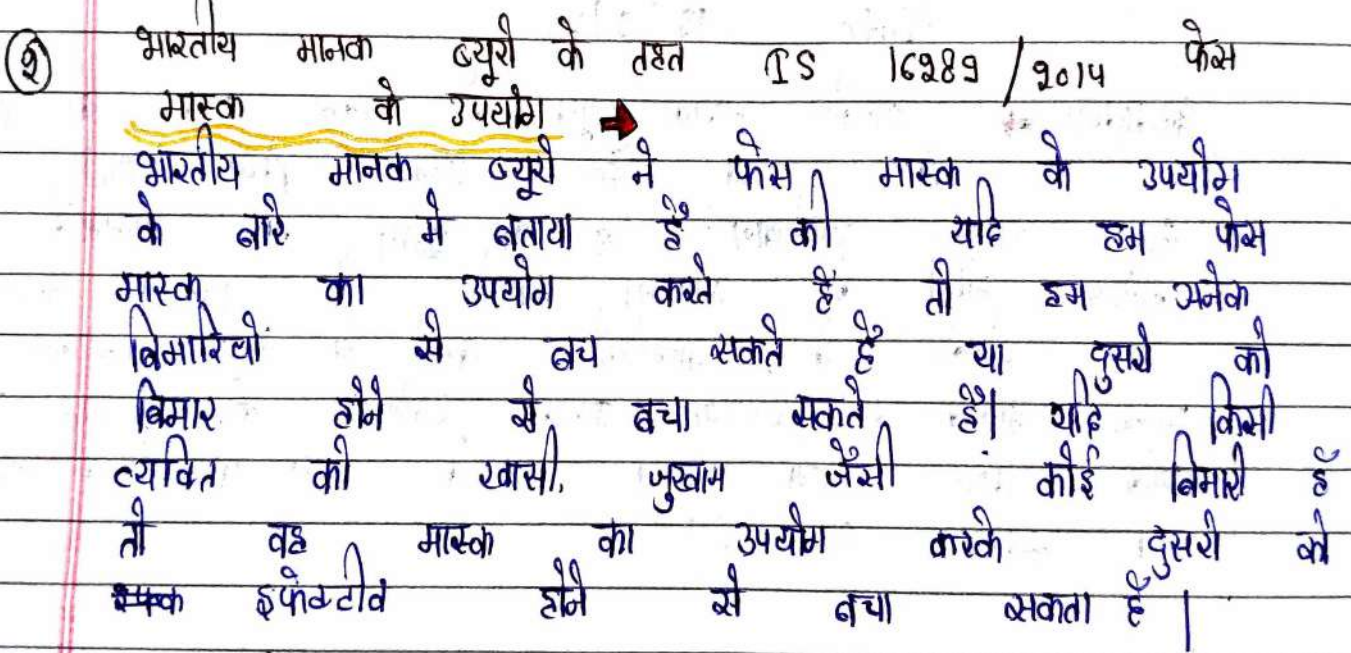 २ भारतीय मानक ब्यूरो के तहत IS 16289/2014 फेस
मास्क के उपयोग →
भारतीय मानक ब्यूरो ने फेस मास्क के उपयोग
के बारे में बताया हैं की यदि हम फेस
मास्क का उपयोग करते हैं तो हम अनेक
बिमारियों से बच सकते हैं या दुसरो को
बिमार होने से बचा सकते हैं। यदि किसी
व्यक्ति को खासी, जुखाम जैसी कोई बिमारी हैं
तो वह मास्क का उपयोग करके दुसरो को
इफेक्टीव होने से बचा सकता हैं |